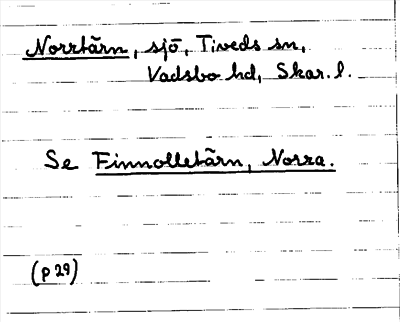 Norrtärn, sjö, Tiveds sn,
Vadsbo hd, Skar. l.
Se Finnolletärn, Norra.
(p 29)